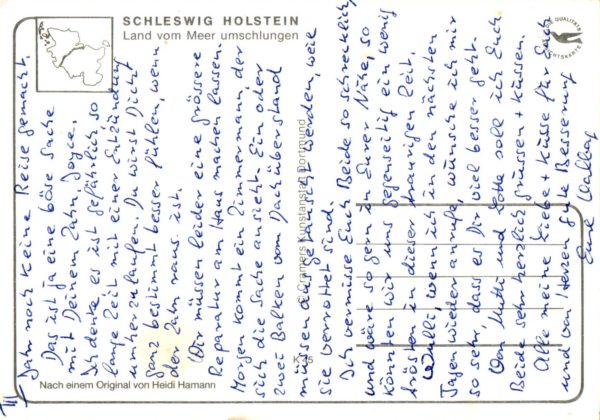 SCHLESWIG HOLSTEIN
Land vom Meer umschlungen
QUALITÄTS
Nach einem Original von Heidi Hamann
Cramers Kunstanstalt Dortmund
K 45
III
Jahr noch keine Reise gemacht.
Das ist ja eine böse Sache
mit Deinem Zahn, Joyce.
Ich denke es ist gefährlich so
lange Zeit mit einer Entzündung
umherzulaufen. Du wirst Dich
ganz bestimmt besser fühlen, wenn
der Zahn raus ist.
Wir müssen leider eine grössere
Reparatur am Haus machen lassen.
Morgen kommt ein Zimmermann, der
sich die Sache ansieht. Ein oder
zwei Balken vom Dachüberstand
müssen ausgetauscht werden, weil
sie verrottet sind.
Ich vermisse Euch Beide so schrecklich
und wäre so gern in Eurer Nähe, so
könnten wir uns gegenseitig ein wenig
trösten in dieser traurigen Zeit.
Walli, wenn ich in den nächsten
Tagen wieder anrufe, wünsche ich mir
so sehr, dass es Dir viel besser geht.
Von Mutti und Lotte soll ich Euch
Beide sehr herzlich grüssen + küssen.
Alle meine Liebe + Küsse für Euch
und von Herzen gute Besserung
Eure